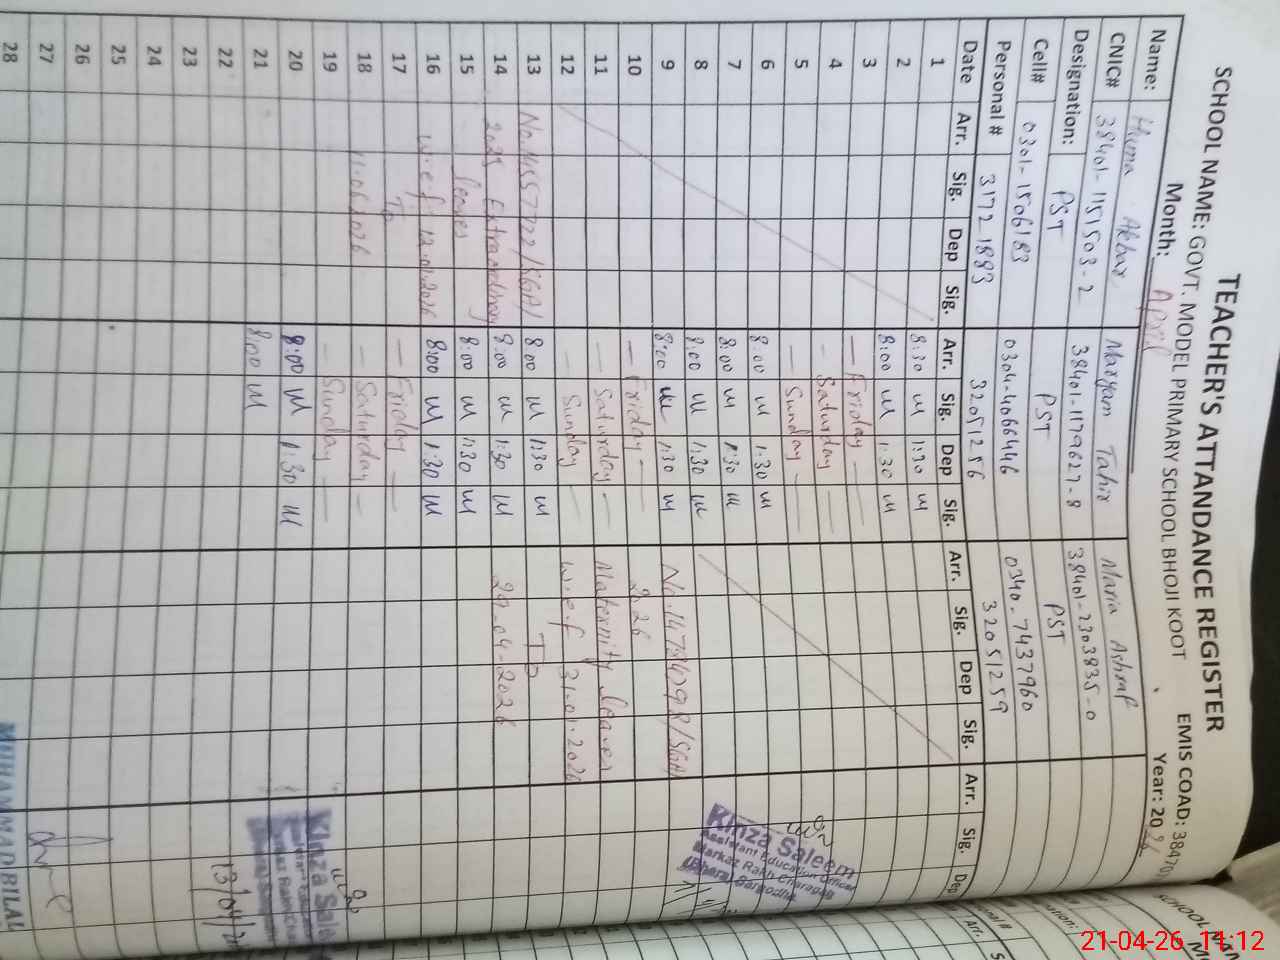 TEACHER'S ATTANDANCE REGISTER
SCHOOL NAME: GOVT. MODEL PRIMARY SCHOOL BHOJI KOOT EMIS COAD: 38470
Month: April Year: 2026
Name: Huma Akbar Maryam Tahir Maria Ashraf
CNIC# 38401-1151503-2 38401-1179627-8 38401-2303835-0
Designation: PST PST PST
Cell# 0301-1506183 0304-4066446 0340-7437960
Personal # 31721883 32051256 32051259
Date Arr. Sig. Dep Sig. Arr. Sig. Dep Sig. Arr. Sig. Dep Sig. Arr. Sig. Dep
1 8:30 1:30
2 8:00 1:30
3 Friday
4 Saturday
5 Sunday
6 8:00 1:30
7 8:00 1:30
8 8:00 1:30
9 8:00 1:30 No.
10 Friday 2026
11 Saturday Maternity leaves
12 Sunday w.e.f 31.01.2026
13 8:00 1:30 To
14 2025 Extraordinary 8:00 1:30 29-04-2026
15 leaves 8:00 1:30
16 w.e.f 12.01.2026 8:00 1:30
17 To Friday
18 11.06.2026 Saturday
19 Sunday
20 8:00 1:30
21 8:00
22
23
24
25
26
27
28
Kinza Saleem
Assistant Education Officer
Markaz Rakh Charagah
(Bhera) Sargodha
Kinza Sale
13/04/2
MUHAMMAD BILAL
SCHOOL NAM
Arr.
21-04-26 11:12